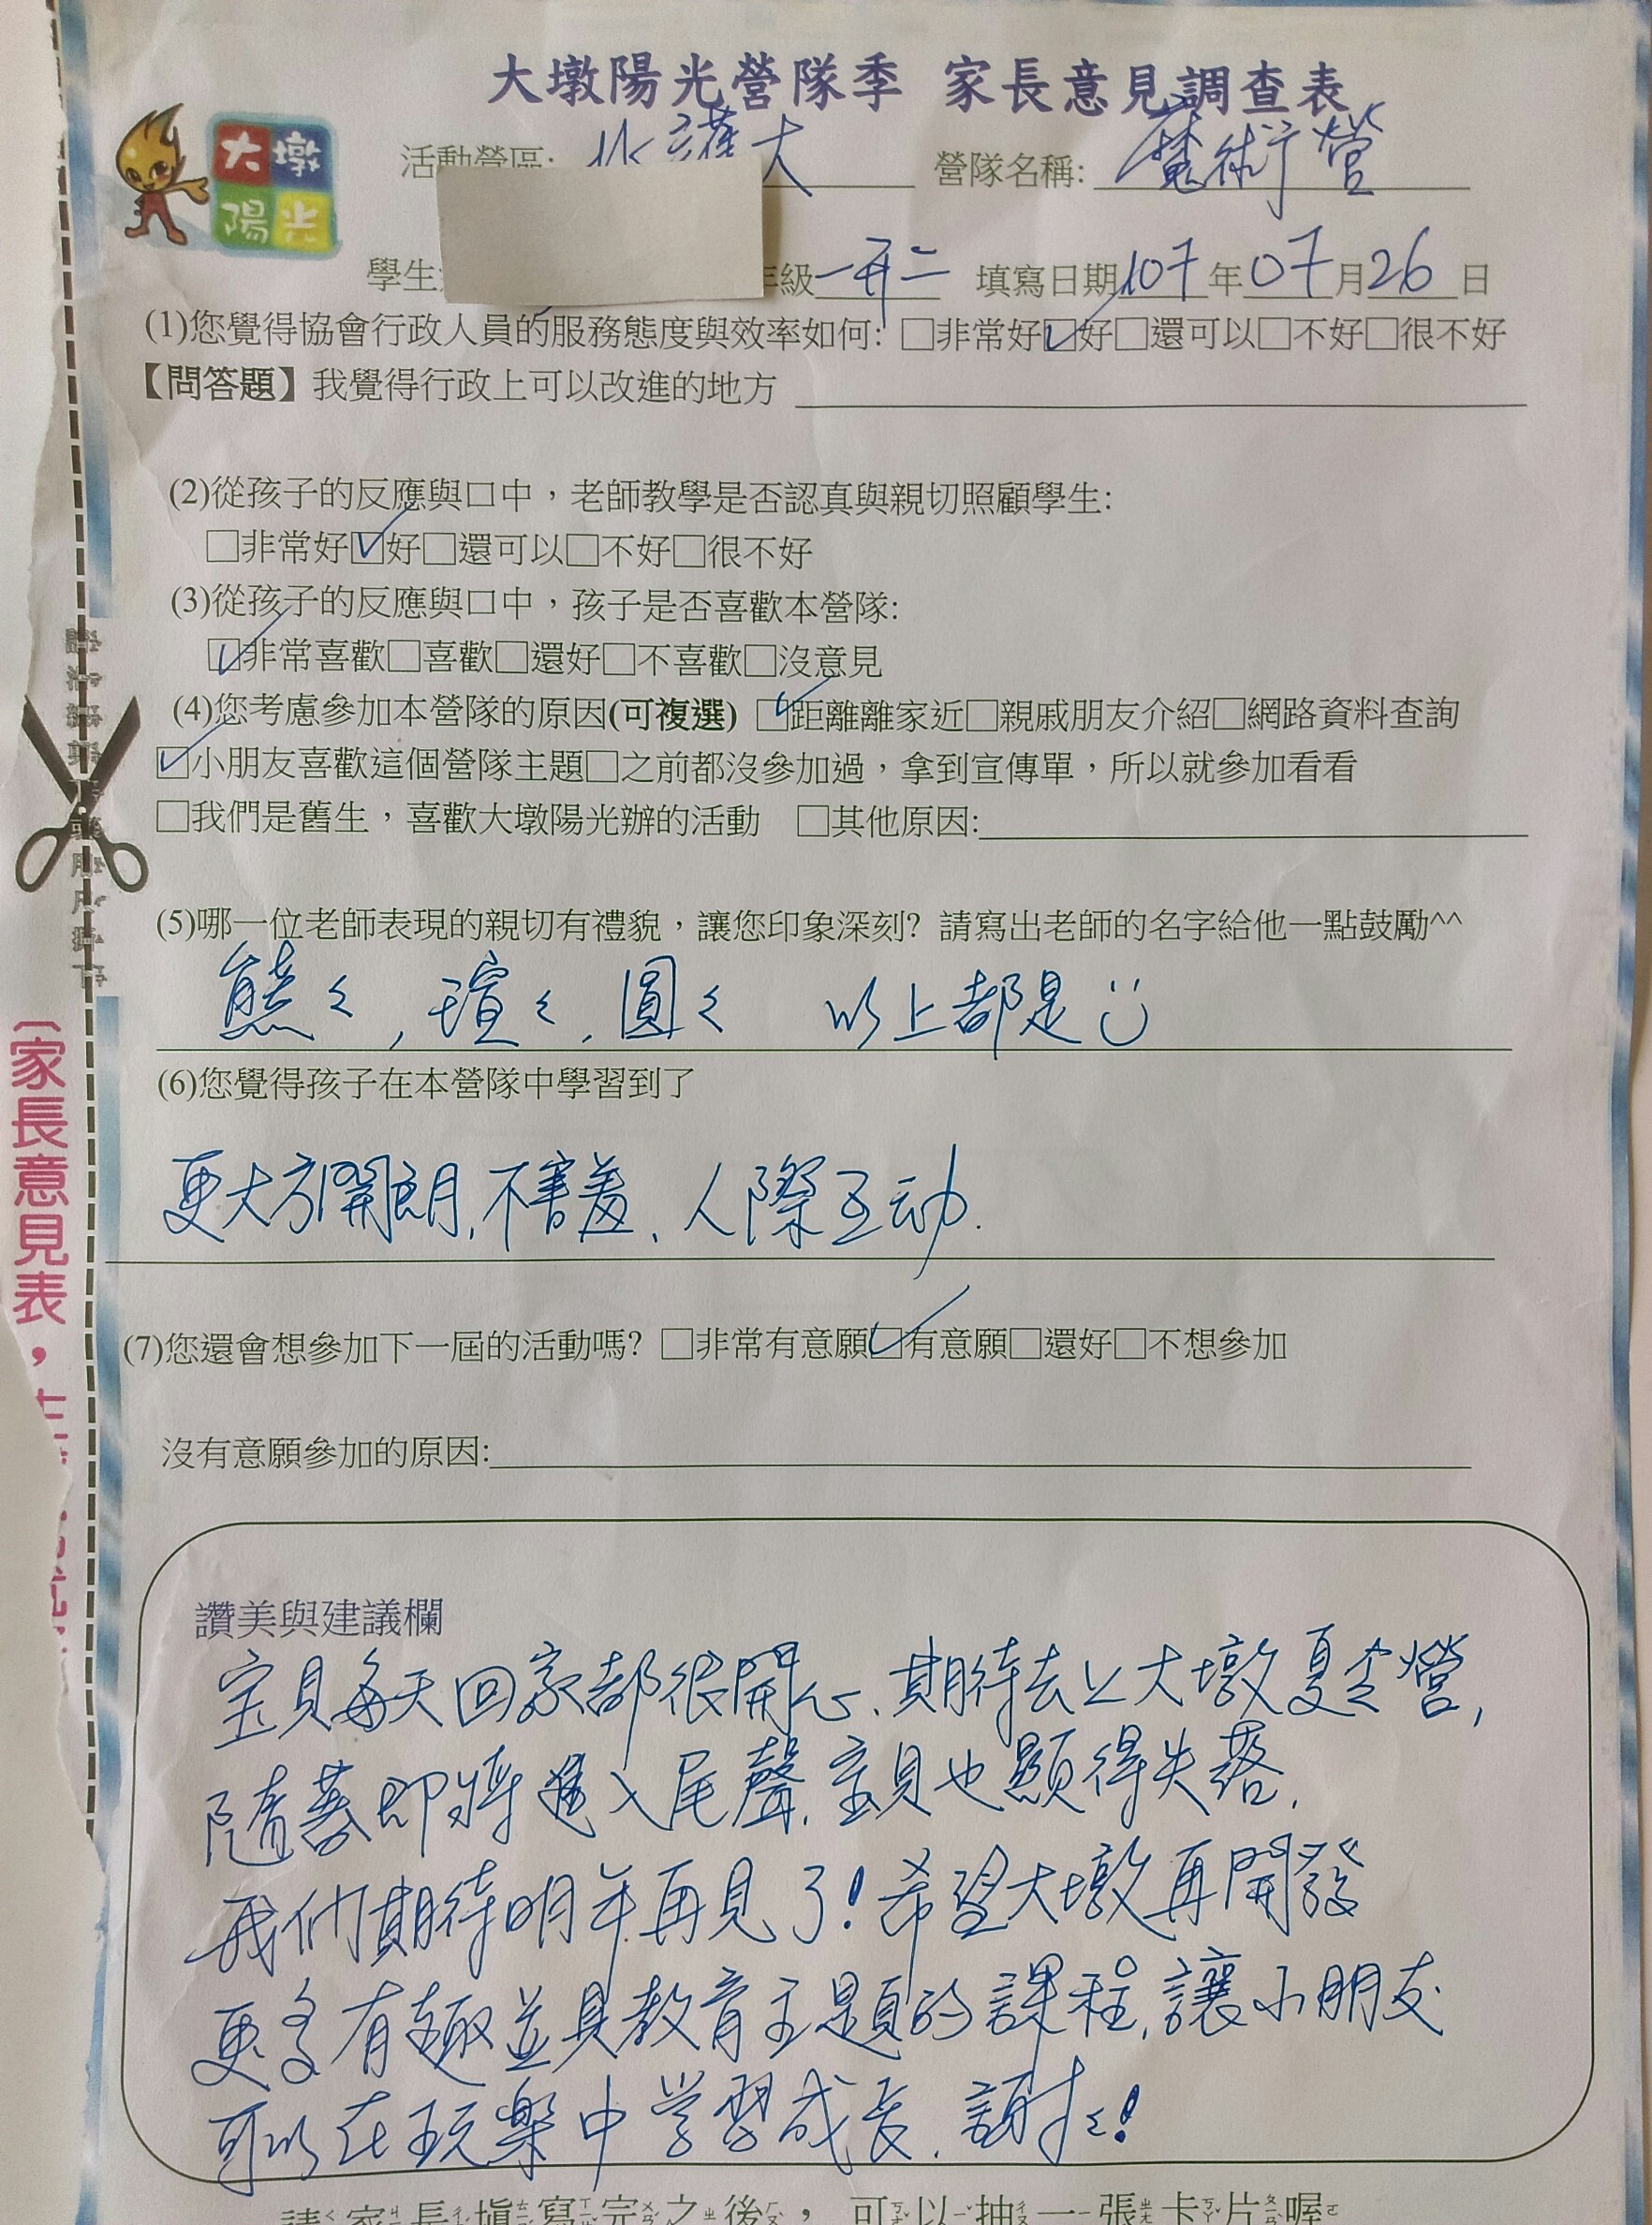 大墩陽光營隊季 家長意見調查表
大墩
陽光
活動營區: 北護大 營隊名稱: 魔術營
學生 年級 一升二 填寫日期 107 年 07 月 26 日
(1)您覺得協會行政人員的服務態度與效率如何: □非常好☑好□還可以□不好□很不好
【問答題】我覺得行政上可以改進的地方
(2)從孩子的反應與口中，老師教學是否認真與親切照顧學生:
□非常好☑好□還可以□不好□很不好
(3)從孩子的反應與口中，孩子是否喜歡本營隊:
☑非常喜歡□喜歡□還好□不喜歡□沒意見
(4)您考慮參加本營隊的原因(可複選) ☑距離離家近□親戚朋友介紹□網路資料查詢
☑小朋友喜歡這個營隊主題□之前都沒參加過，拿到宣傳單，所以就參加看看
□我們是舊生，喜歡大墩陽光辦的活動 □其他原因:
(5)哪一位老師表現的親切有禮貌，讓您印象深刻? 請寫出老師的名字給他一點鼓勵^^
熊々, 瑄々, 圓々 以上都是
(6)您覺得孩子在本營隊中學習到了
更大方開朗, 不害羞, 人際互动.
(7)您還會想參加下一屆的活動嗎? □非常有意願☑有意願□還好□不想參加
沒有意願參加的原因:
讚美與建議欄
宝貝每天回家都很開心, 期待去上大墩夏令營,
隨著即將進入尾聲, 宝貝也顯得失落,
我們期待明年再見了! 希望大墩再開發
更多有趣並具教育主題的課程, 讓小朋友
可以在玩樂中学習成長, 謝々!
請家長填寫完之後，可以抽一張卡片喔
〔家長意見表，